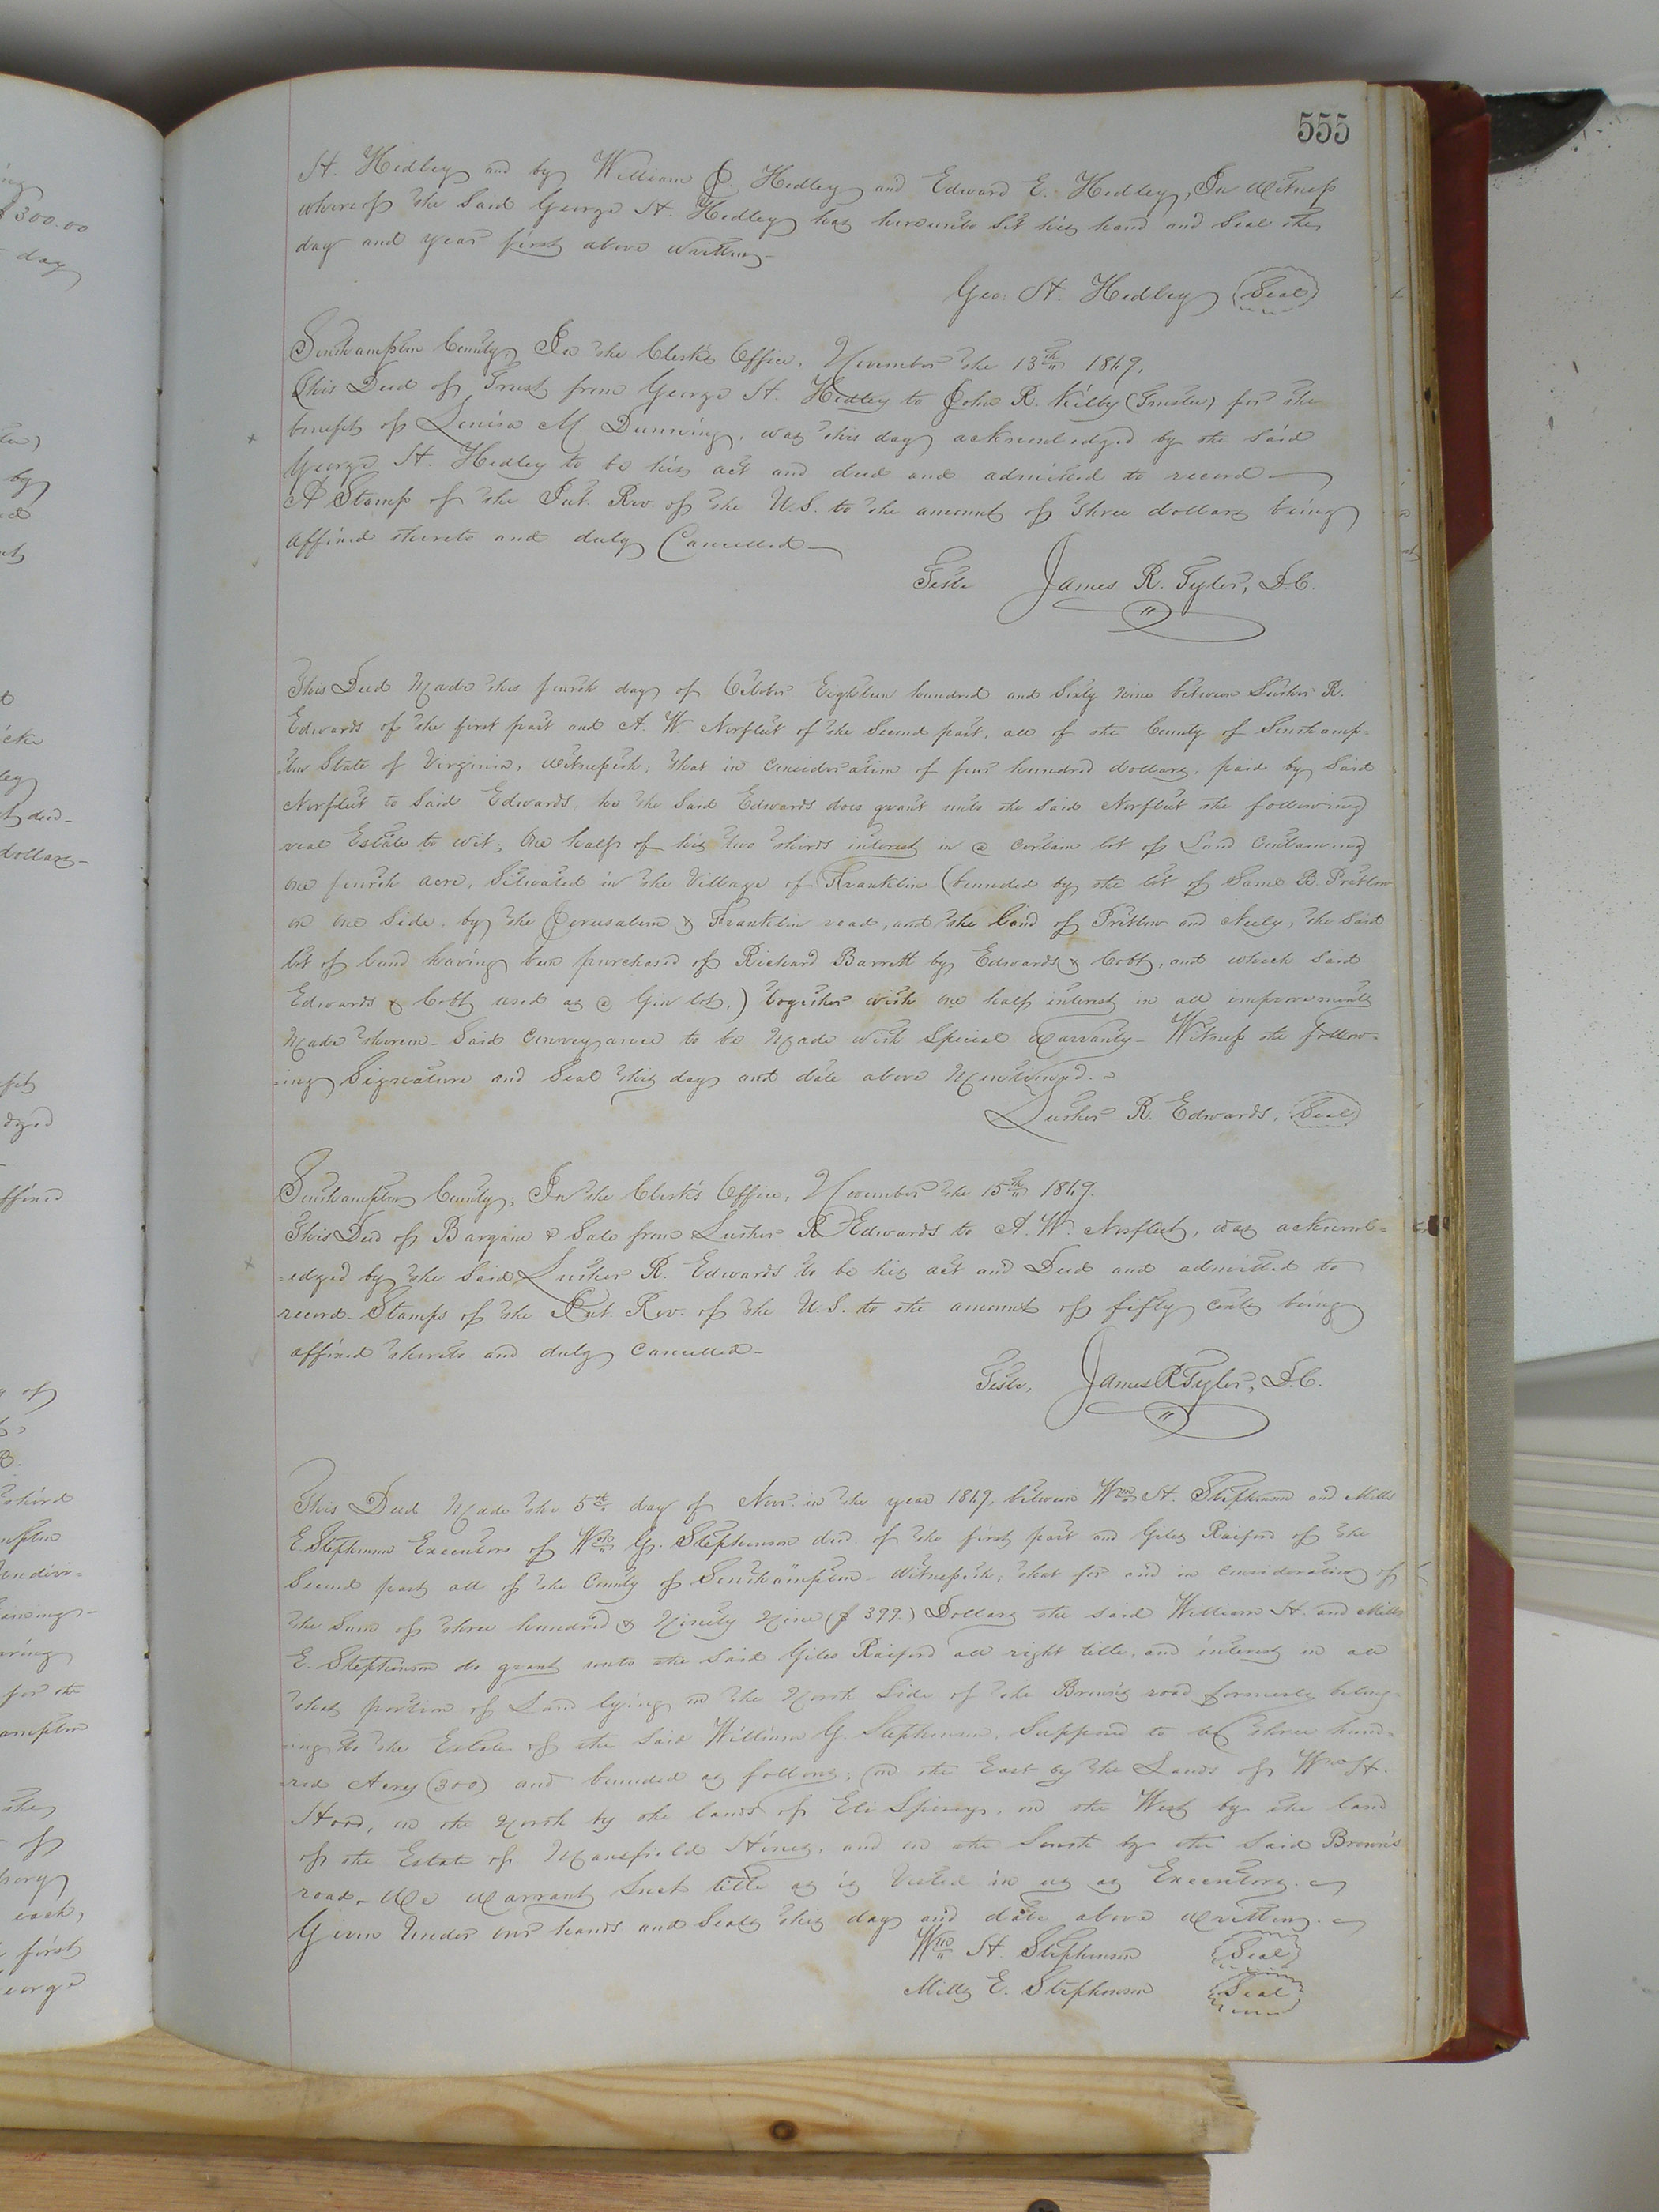 555
H. Hedley and by William J. Hedley and Edward E. Hedley, In Witness
whereof the Said George H. Hedley has hereunto Set his hand and Seal the
day and year first above written
Geo: H. Hedley (Seal)
Southampton County, In the Clerk's Office, November the 13th 1869,
This Deed of Trust from George H. Hedley to John R. Kilby (Trustee) for the
benefit of Louisa M. Dunning, was this day acknowledged by the said
George H. Hedley to be his act and deed and admitted to record
A Stamp of the Int. Rev. of the U.S. to the amount of three dollars being
affixed thereto and duly Cancelled
Teste James R. Tyler, D.C.
This Deed Made this fourth day of October Eighteen hundred and Sixty Nine between Luther R.
Edwards of the first part and A. W Norfleet of the Second part, all of the County of Southamp=
ton State of Virginia, Witnesseth; that in Consideration of four hundred dollars, paid by Said
Norfleet to Said Edwards, he the Said Edwards does grant unto the said Norfleet the following
real Estate to wit; One half of his two thirds interest in a certain lot of Land Containing
one fourth acre, Situated in the Village of Franklin (bounded by the lot of B. Pretlow
on one Side, by the Jerusalem & Franklin road, and the land of Pretlow and Neely, the Said
lot of land having been purchased of Richard Barrett by Edwards & Cobb, and which Said
Edwards & Cobb used as a Gin lot,) together with one half interest in all improvements
Made thereon_ Said Conveyance to be Made with Special Warranty_ Witness the follow=
ing Signature and Seal this day and date above Mentioned.
Luther R. Edwards, (Seal)
Southampton County; In the Clerk's Office, November the 15th 1869.
This Deed of Bargain & Sale from Luther R Edwards to A. W. Norfleet, was acknowl=
=edged by the Said Luther R. Edwards to be his act and Deed and admitted to
record_ Stamps of the Int. Rev. of the U.S. to the amount of fifty cents being
affixed thereto and duly Cancelled_
Teste, James R Tyler, D.C.
This Deed Made the 5th day of Nov. in the year 1869, between Wm H. Stephenson and Mills
E. Stephenson Executors of Wm G. Stephenson decd. of the first part and Giles Raiford of the
Second part all of the County of Southampton_ Witnesseth; that for and in consideration of
the Sum of three hundred & Ninety Nine ($399.) Dollars the said William H. and Mills
E. Stephenson do grant unto the Said Giles Raiford all right title, and interest in all
that portion of Land lying on the North Side of the Brown's road formerly belong=
ing to the Estate of the Said William G. Stephenson, Supposed to be three hund=
red Acres (300) and bounded as follows; on the East by the Lands of Wm H.
Hood, on the North by the lands of Eli Spivey, on the West by the land
of the Estate of Mansfield Hines, and on the South by the Said Brown's
road_ We Warrant Such title as is Vested in us as Executors.
Given Under our hands and Seals this day and date above written.
Wm H. Stephenson (Seal)
Mills E. Stephenson (Seal)